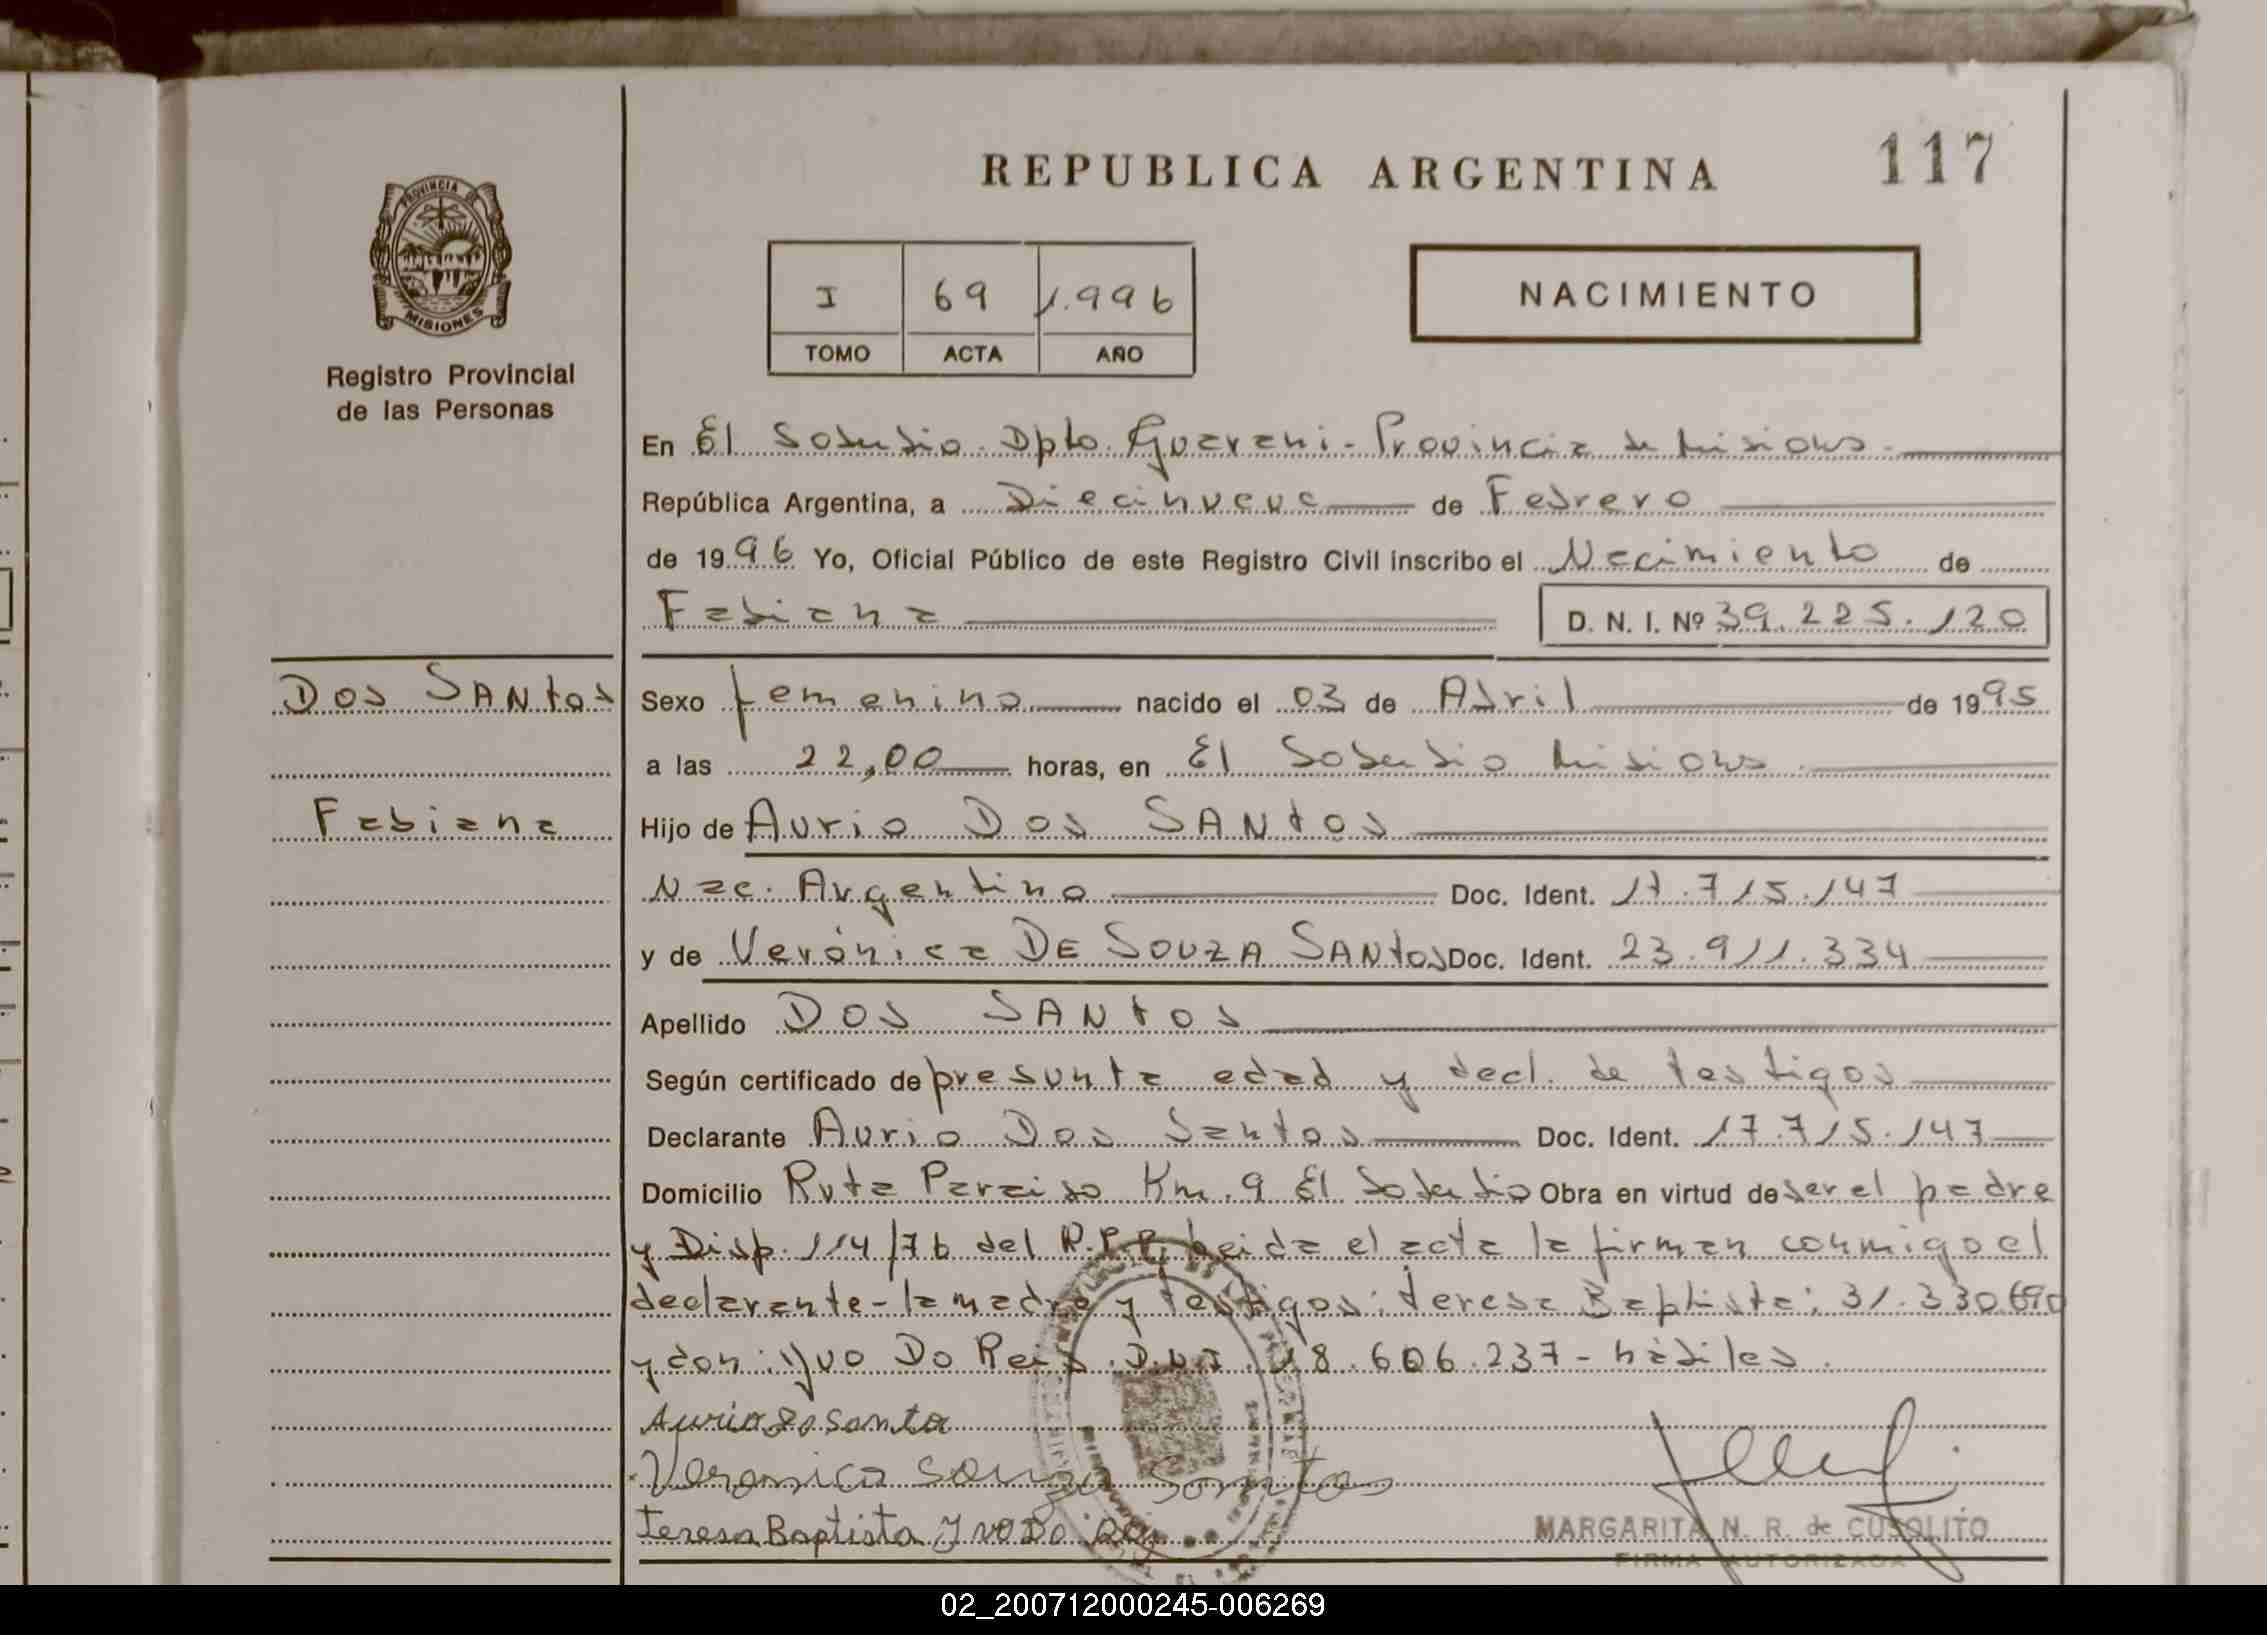 REPUBLICA ARGENTINA
117
PROVINCIA DE
MISIONES
Registro Provincial
de las Personas
I 69 1.996
TOMO ACTA AÑO
NACIMIENTO
En El Soberbio. Dpto. Guarani - Provincia de Misiones.
República Argentina, a Diecinueve de Febrero
de 1996 Yo, Oficial Público de este Registro Civil inscribo el Nacimiento de
Fabiana D. N. I. Nº 39.225.120
Dos SANtos
Fabiana
Sexo femenino nacido el 03 de Abril de 1995
a las 22,00 horas, en El Soberbio Misiones
Hijo de Aurio Dos SANtos
Nac. Argentino Doc. Ident. 17.715.147
y de Verónica DE SOUZA SANtos Doc. Ident. 23.911.334
Apellido Dos SANtos
Según certificado de presunta edad y decl. de testigos
Declarante Aurio Dos Santos Doc. Ident. 17.715.147
Domicilio Ruta Paraiso Km. 9 El Soberbio Obra en virtud de ser el padre
y Disp. 114/76 del R.P.P. Leida el acta la firman conmigo el
declarante - la madre y testigos: teresa Baptista; 31.330.690
y don: Yvo Do Reis. D.N.I. 18.606.237 - hábiles.
Aurio do santo
Veronica Souza Santos
Teresa Baptista Yvo Do Reis
MARGARITA N. R. de CUSOLITO
FIRMA AUTORIZADA
02_200712000245-006269